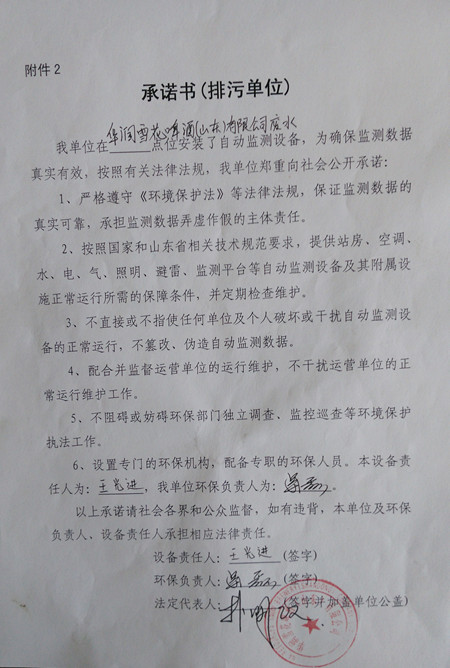 附件2
承诺书(排污单位)
华润雪花啤酒(山东)有限公司废水
我单位在______点位安装了自动监测设备，为确保监测数据
真实有效，按照有关法律法规，我单位郑重向社会公开承诺：
1、严格遵守《环境保护法》等法律法规，保证监测数据的
真实可靠，承担监测数据弄虚作假的主体责任。
2、按照国家和山东省相关技术规范要求，提供站房、空调、
水、电、气、照明、避雷、监测平台等自动监测设备及其附属设
施正常运行所需的保障条件，并定期检查维护。
3、不直接或不指使任何单位及个人破坏或干扰自动监测设
备的正常运行，不篡改、伪造自动监测数据。
4、配合并监督运营单位的运行维护，不干扰运营单位的正
常运行维护工作。
5、不阻碍或妨碍环保部门独立调查、监控巡查等环境保护
执法工作。
6、设置专门的环保机构，配备专职的环保人员。本设备责
任人为：王光进，我单位环保负责人为：
以上承诺请社会各界和公众监督，如有违背，本单位及环保
负责人、设备责任人承担相应法律责任。
设备责任人：王光进(签字)
环保负责人：(签字)
法定代表人：(签字并加盖单位公盖)